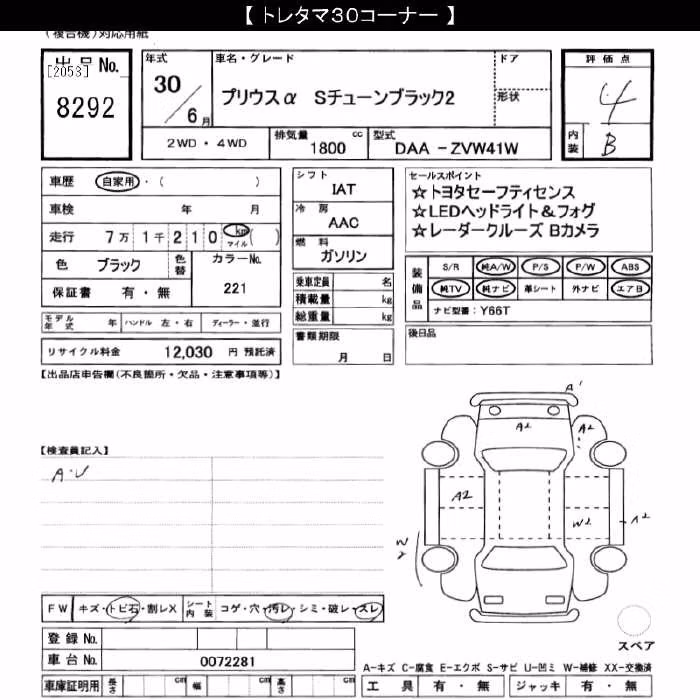 【 トレタマ30コーナー 】
(複合機)対応用紙
出品No.
[2053]
8292
年式
30
6月
車名・グレード
プリウスα Sチューンブラック2
ドア
形状
評価点
4
内装
B
2WD・4WD
排気量
1800
cc
型式
DAA -ZVW41W
車歴 自家用・( )
車検 年 月
走行 7万1千210 km マイル ( )
色 ブラック 色替
カラーNo.
221
保証書 有・無
シフト
IAT
冷房
AAC
燃料
ガソリン
乗車定員 名
積載量 kg
総重量 kg
書類期限
月 日
セールスポイント
☆トヨタセーフティセンス
☆LEDヘッドライト&フォグ
☆レーダークルーズ Bカメラ
装備品
S/R 純A/W P/S P/W ABS
純TV 純ナビ 革シート 外ナビ エアB
ナビ型番：Y66T
後日品
モデル年式 年 ハンドル 左・右 ディーラー・並行
リサイクル料金 12,030 円 預託済
【出品店申告欄(不良箇所・欠品・注意事項等)】
【検査員記入】
A・U
A1
A2
A2
A2
W2
A2
W2
スペア
FW キズ・トビ石・割レX
シート内装 コゲ・穴・汚レ・シミ・破レ・スレ
登録No.
車台No. 0072281
車庫証明用 長さ cm 幅 cm 高さ cm
A-キズ C-腐食 E-エクボ S-サビ U-凹ミ W-補修 XX-交換済
工具 有・無 ジャッキ 有・無